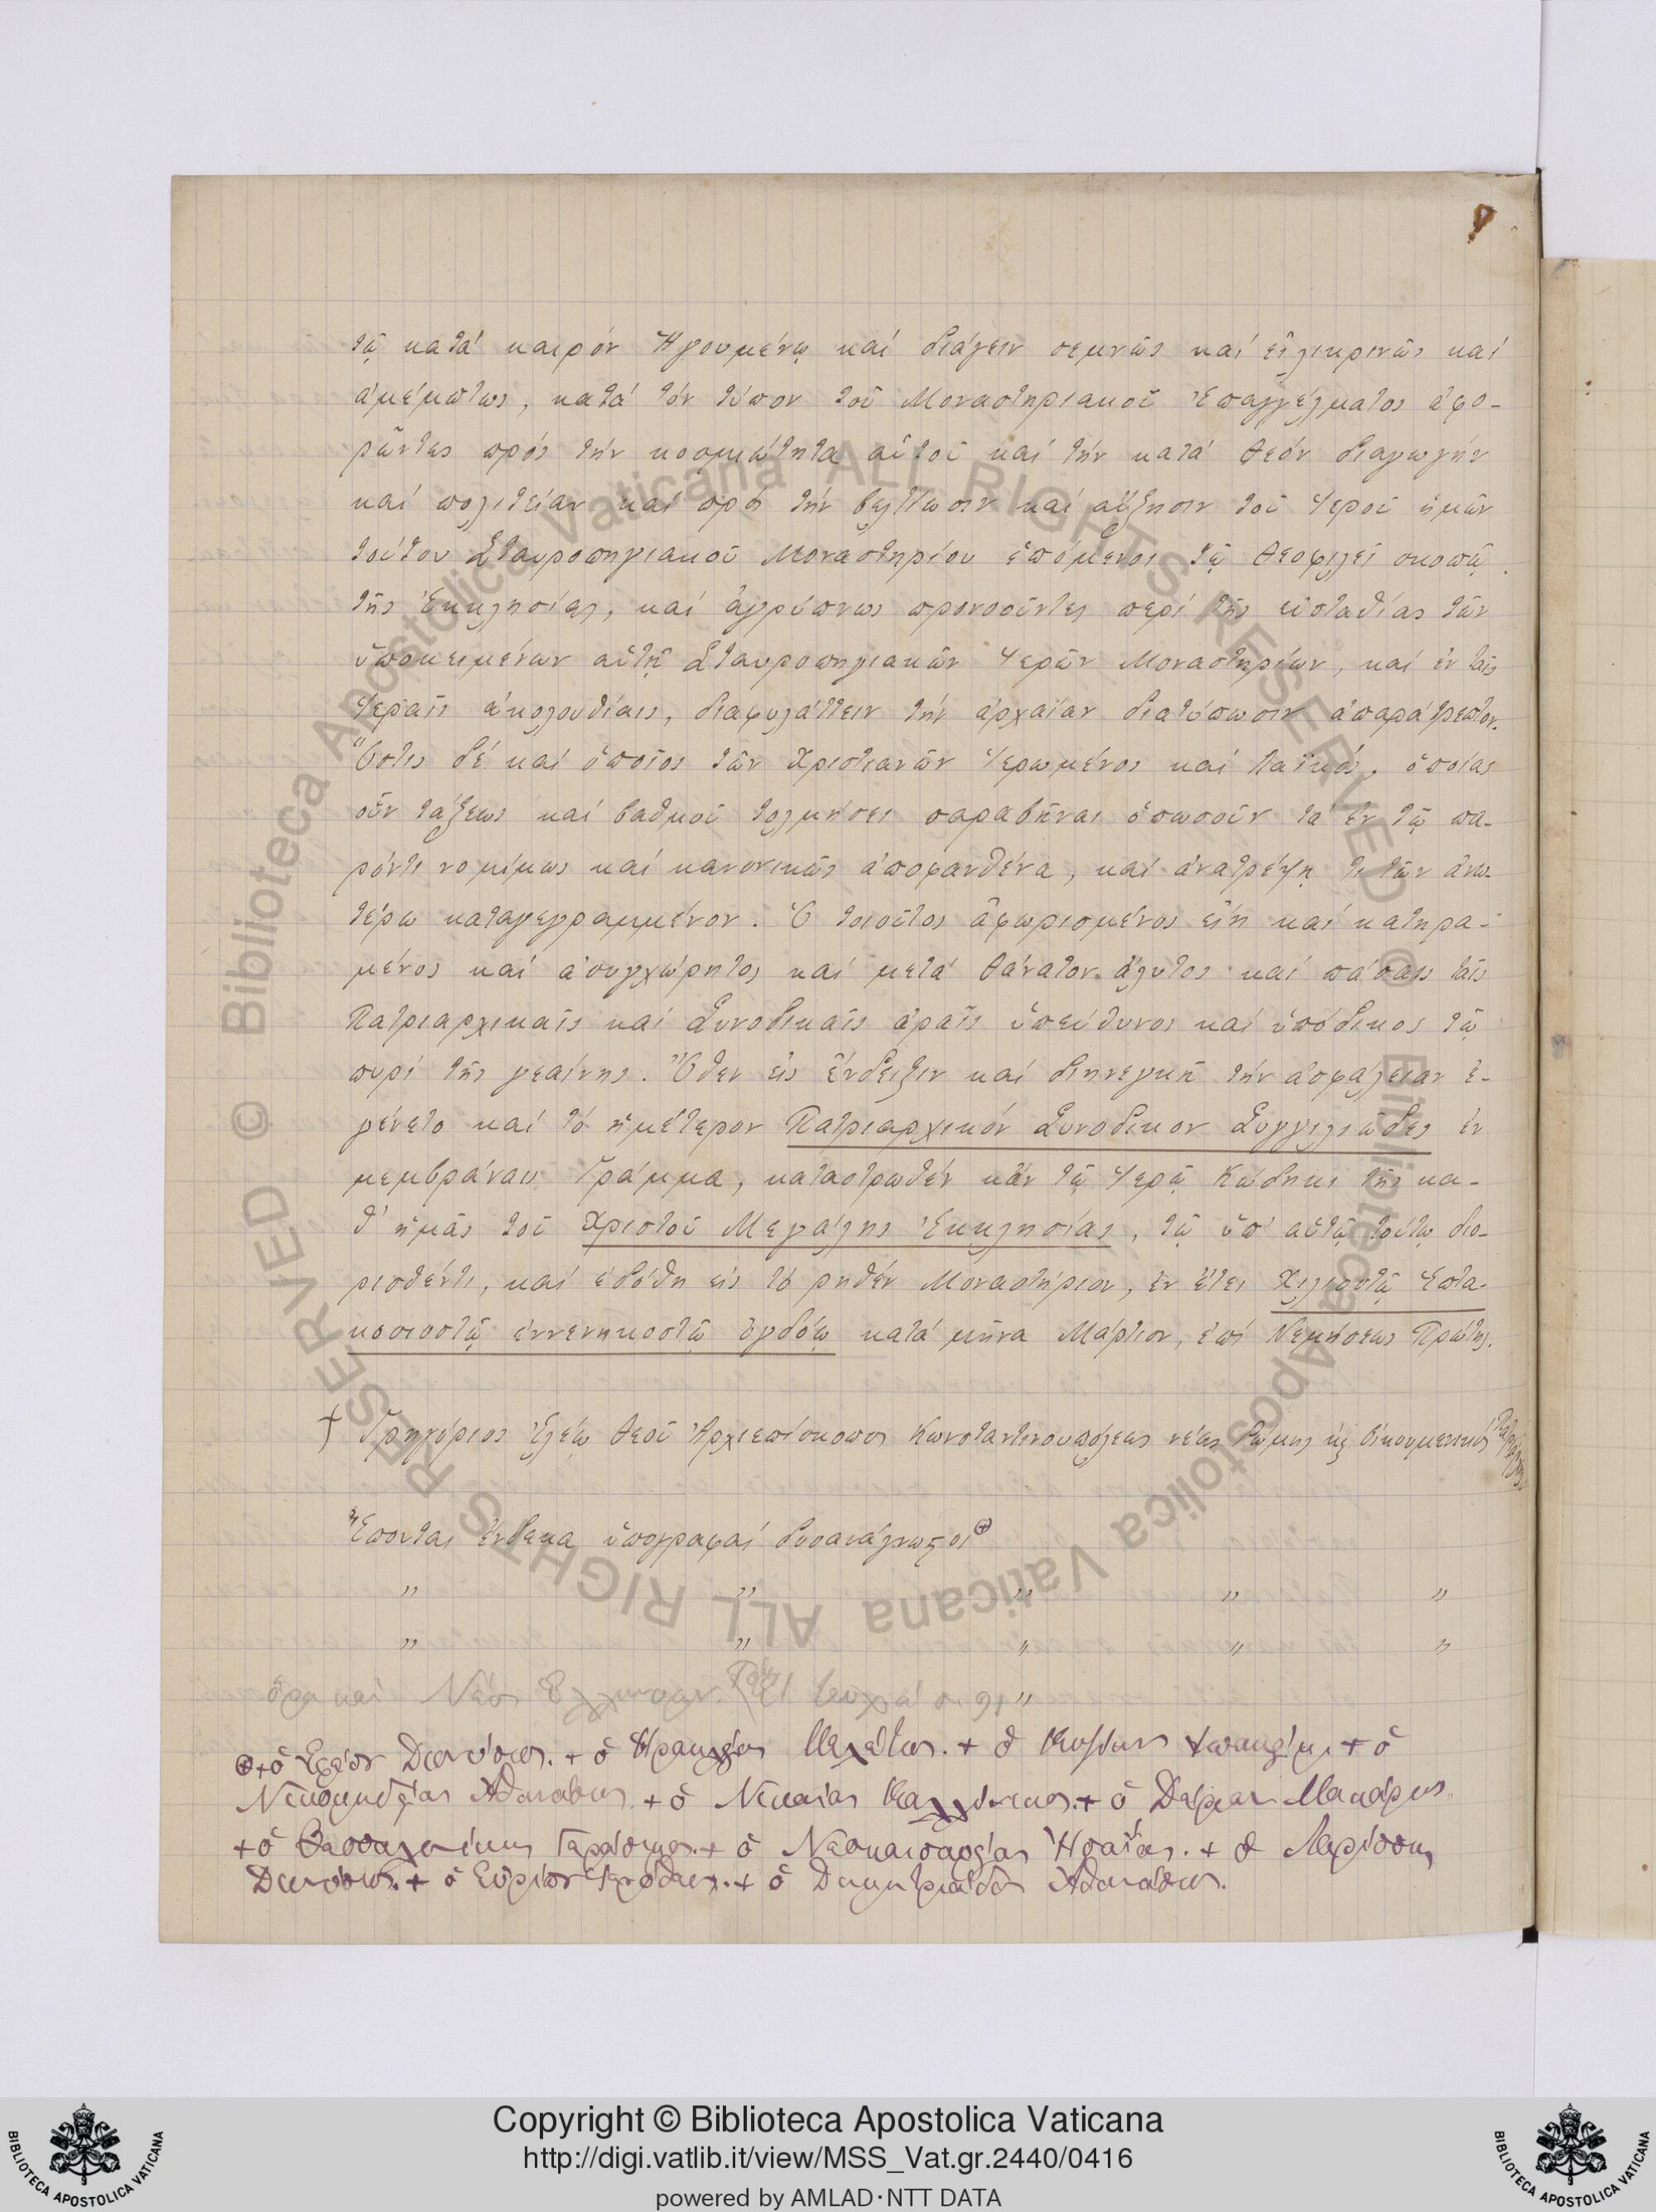 τῷ κατά καιρόν Ἡγουμένῳ καί διάγειν σεμνῶς καί εἰλικρινῶς καί
ἀμέμπτως, κατά τόν τύπον τοῦ Μοναστηριακοῦ Ἐπαγγέλματος ἀφο-
ρῶντες πρός τήν κοσμιώτητα αὐτοῦ καί τήν κατά Θεόν διαγωγήν
καί πολιτείαν καί πρός τήν βελτίωσιν καί αὔξησιν τοῦ Ἱεροῦ ἡμῶν
τούτου Σταυροπηγιακοῦ Μοναστηρίου ἑπόμενοι τῷ Θεοφιλεῖ σκοπῷ
τῆς Ἐκκλησίας, καί ἀγρύπνως προνοοῦντες περί τῆς εὐσταθίας τῶν
ὑποκειμένων αὐτῇ Σταυροπηγιακῶν Ἱερῶν Μοναστηρίων, καί ἐν ταῖς
Ἱεραῖς ἀκολουθίαις, διαφυλάττειν τήν ἀρχαίαν διατύπωσιν ἀπαράτρεπτον.
Ὅστις δέ καί ὁποῖος τῶν Χριστιανῶν Ἱερωμένος καί Λαϊκός, ὁποίας
οὖν τάξεως καί βαθμοῦ τολμήσει παραβῆναι ὁπωσοῦν τά ἐν τῷ πα-
ρόντι νομίμως καί κανονικῶς ἀποφανθένα, καί ἀνατρέψῃ τι τῶν ἀνω-
τέρω καταγεγραμμένον. Ὁ τοιοῦτος ἀφωρισμένος εἴη καί κατηρα-
μένος καί ἀσυγχώρητος καί μετά θάνατον ἄλυτος καί πάσαις ταῖς
Πατριαρχικαῖς καί Συνοδικαῖς ἀραῖς ὑπεύθυνος καί ὑπόδικος τῷ
πυρί τῆς γεαίνης. Ὅθεν εἰς ἔνδειξιν καί διηνεγκῆ τήν ἀσφάλειαν ἐ-
γένετο καί τό ἡμέτερον Πατριαρχικόν Συνοδικον Συγγιλιῶδες ἐν
μεμβράναις Γράμμα, καταστρωθέν κἀν τῷ Ἱερῷ Κώδηκι τῆς κα-
θ' ἡμᾶς τοῦ Χριστοῦ Μεγάλης Ἐκκλησίας, τῷ ὑπ' αὐτῷ τούτῳ διο-
ρισθέντι, καί ἐδόθη εἰς τό ρηθέν Μοναστήριον, ἐν ἔτει Χιλιοστῷ Ἑπτα-
κοσιοστῷ ἐννενηκοστῷ ὀγδόῳ κατά μῆνα Μάρτιον, ἐπί Νεμήσεως Πρώτης.
† Γρηγόριος Ἐλέῳ Θεοῦ Ἀρχιεπίσκοπος Κωνσταντινουπόλεως νέας Ῥώμης κ̀ Οἰκουμενικός Πατριάρχης
Ἕπονται ἕνδεκα ὑπογραφαί δυσανάγνωστοι ⊕
" " " " "
" " " " "
ὅρα καὶ Νέον Ἑλληνομν.
⊕ + ὁ Διονύσιος. + ὁ Ἡρακλείας Μελέτιος. + ὁ Κυζίκου Ἰωακείμ. + ὁ
Νικομηδείας Ἀθανάσιος. + ὁ Νικαίας Καλλίνικος. + ὁ Δέρκων Μακάριος.
+ ὁ Θεσσαλονίκης Γεράσιμος. + ὁ Νεοκαισαρείας Ἡσαΐας. + ὁ Λαρίσσης
Διονύσιος. + ὁ Εὐρίπου Ἱερόθεος. + ὁ Δημητριάδος Ἀθανάσιος.
Copyright © Biblioteca Apostolica Vaticana
http://digi.vatlib.it/view/MSS_Vat.gr.2440/0416
powered by AMLAD·NTT DATA
BIBLIOTECA APOSTOLICA VATICANA
BIBLIOTECA APOSTOLICA VATICANA
© Biblioteca Apostolica Vaticana ALL RIGHTS RESERVED
© Biblioteca Apostolica Vaticana ALL RIGHTS RESERVED